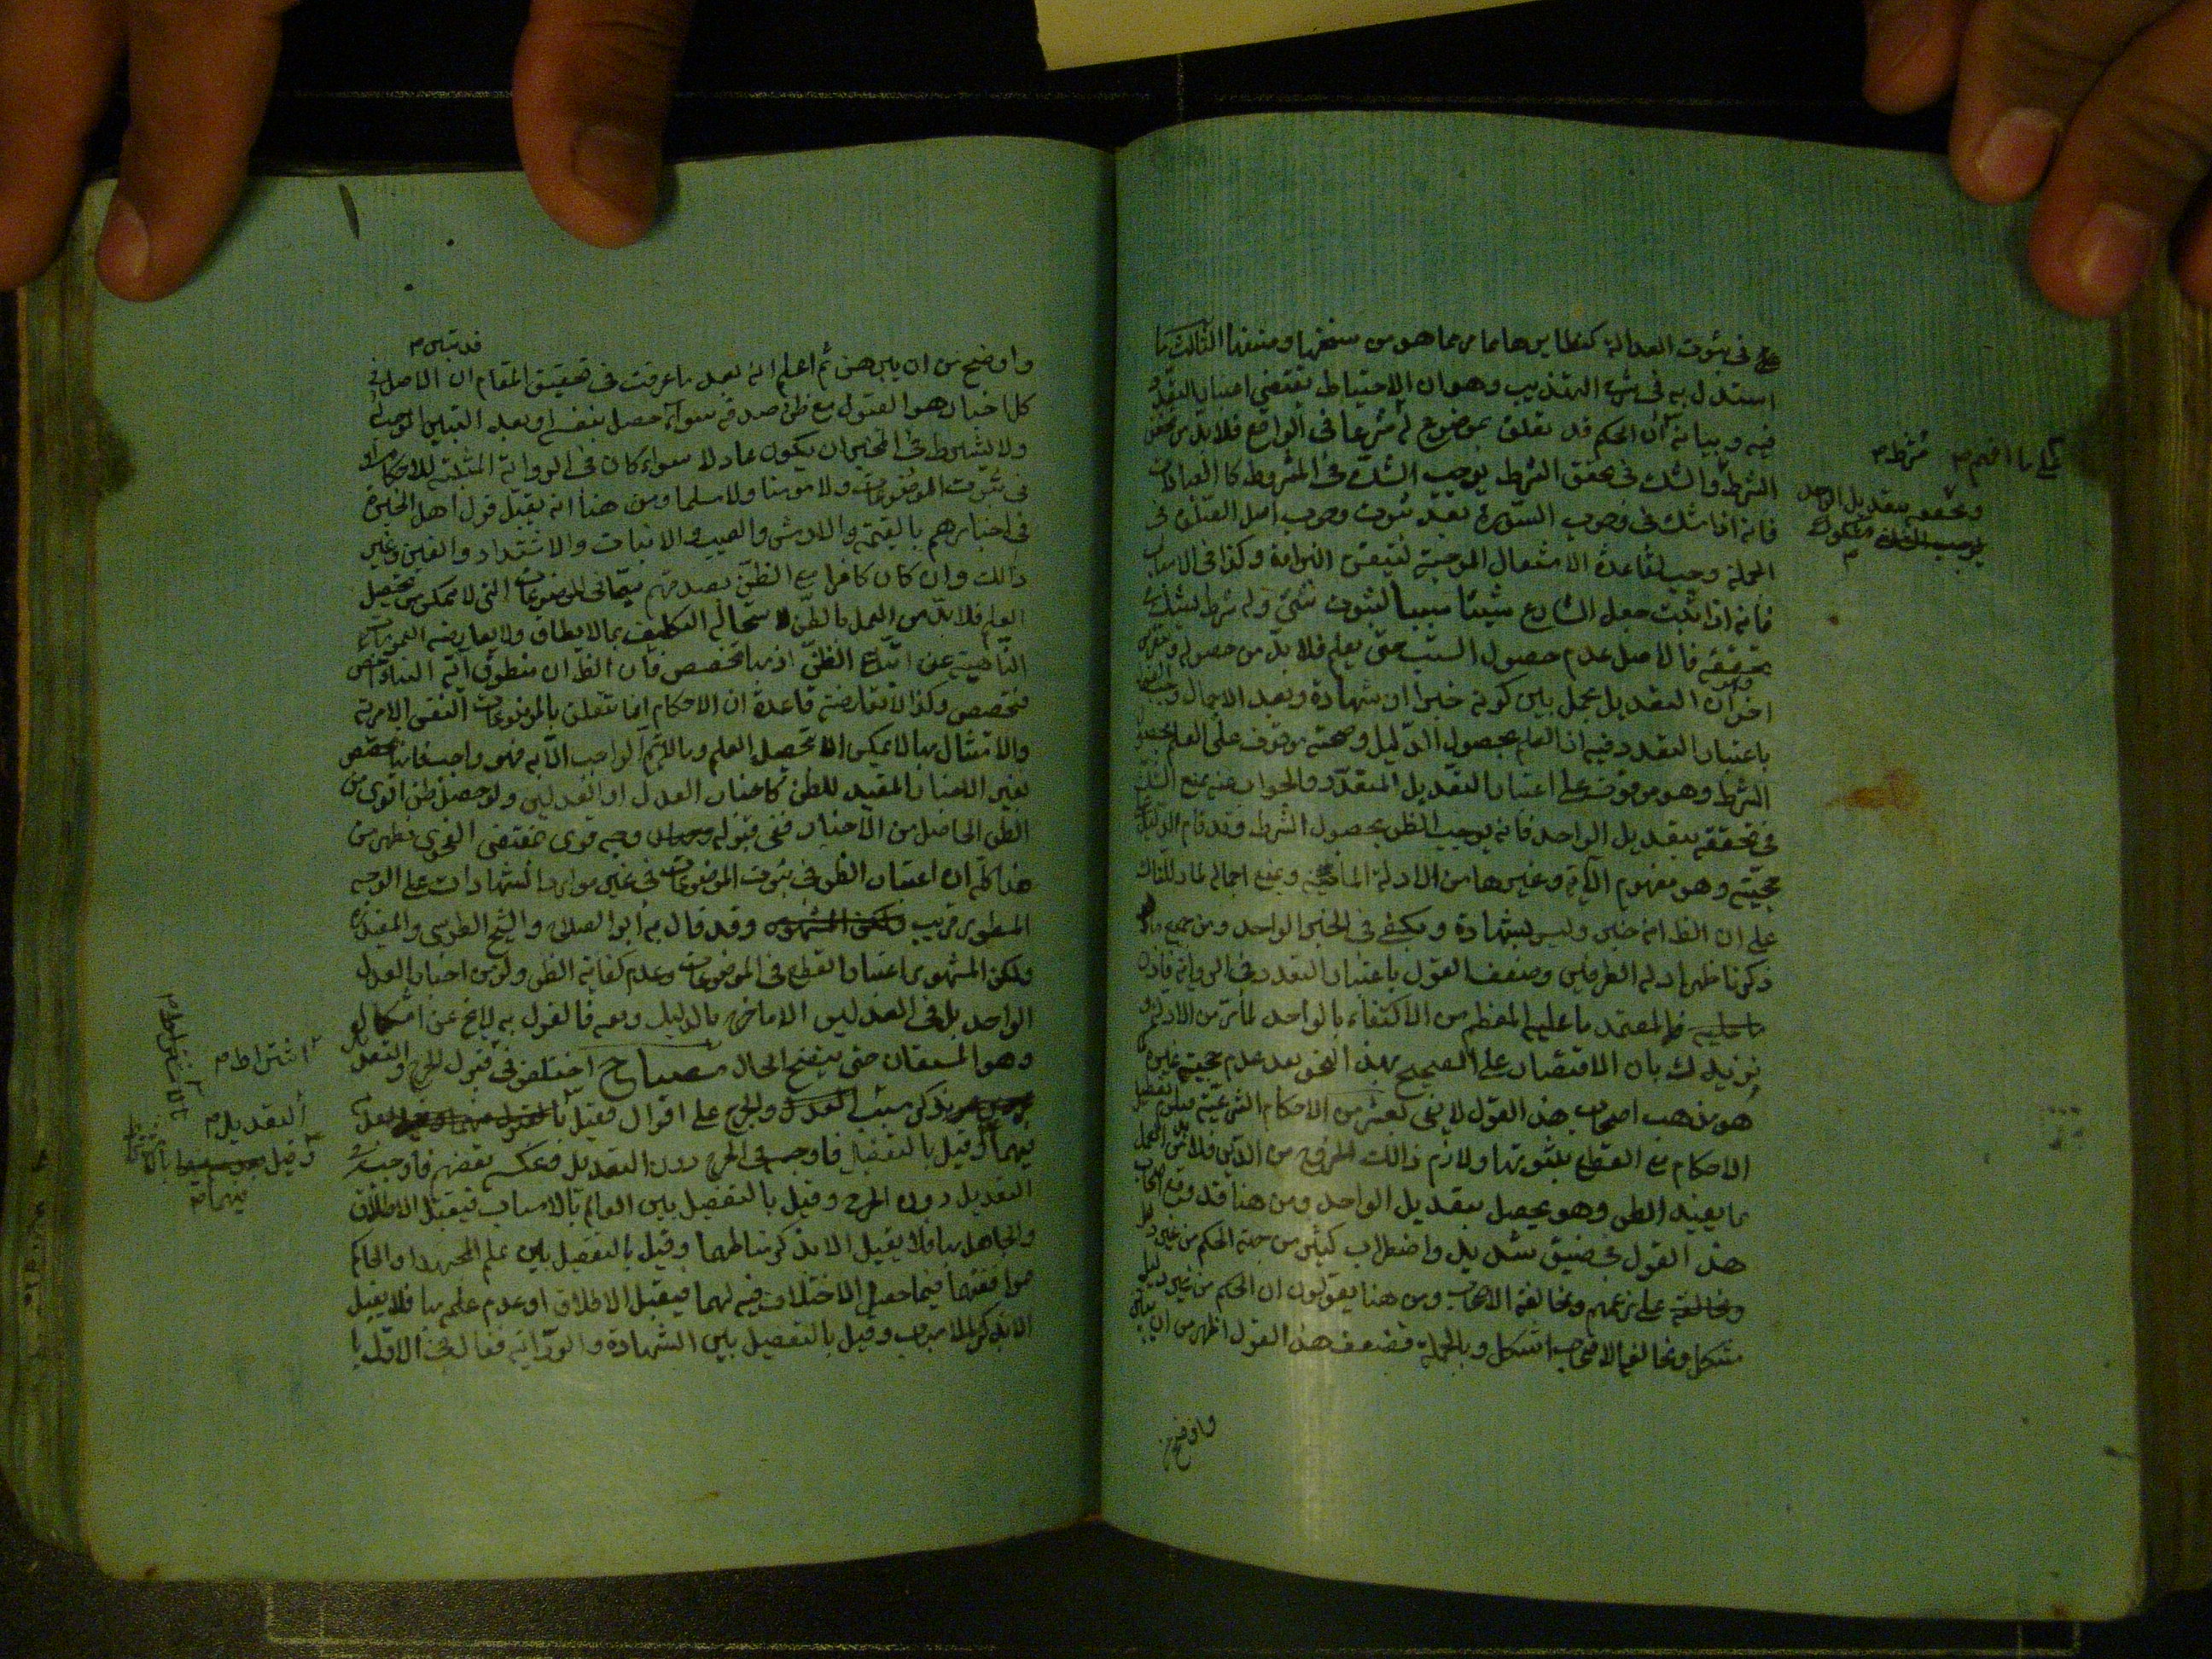 في ثبوت العدالة كنظايرها مما هو من سنخها وصنفها الثالث ما
استدل به في شرح التهذيب وهو ان الاحتياط يقتضي اعتبار التعدد
فيه وبيانه ان الحكم قد تعلق بموضوع له شرعا في الواقع فلابد من تحقق
الشرط والشك في تحقق الشرط يوجب الشك في المشروط كالعبادات
فانه اذا شك في وجوب السورة بعد ثبوت وجوب اصل الصلوة في
الجملة وجب لقاعدة الاشتغال الموجبة لتيقن البرائة وكذا في الاسباب
فانه اذا ثبت جعل الشارع شيئا سببا لثبوت شئ وله شرط يشك في
تحققه فالاصل عدم حصول السبب حتى يعلم فلابد من حصوله
اخر ان التعديل مجمل بين كونه خبرا او شهادة وبعد الاجمال وجب
باعتبار التعدد فيه اذ العلم بحصول الدليل وصحته موقوف على العلم بحصول
الشرط وهو موقوف على اعتبار التعديل المتعدد والجواب عنه بمنع الشك
في تحققه بتعديل الواحد فانه يوجب الظن بحصول الشرط وقد قام الدليل على
حجيته وهو مفهوم الآية وغيرها من الادلة الماضية ونمنع اجماله
على ان الظ انه خبر وليس بشهادة ويكفي في الخبر الواحد ومن جميع ما
ذكرنا ظهر ادلة الطرفين وضعف القول باعتبار التعدد في الرواية
فالمعتمد ما عليه المعظم من الاكتفاء بالواحد لما مر من الادلة و
نزيدك بان الاقتصار على الصحيح بهذا النحو بعد عدم حجية غيره
هو مذهب اصحاب هذا القول لا يفي بعشر من الاحكام الشرعية فيلزم تعطيل
الاحكام مع القطع بثبوتها ولازم ذلك الخروج من الدين فلابد من العمل
بما يفيد الظن وهو يحصل بتعديل الواحد ومن هنا قد وقع اصحاب
هذا القول في ضيق شديد واضطراب كثير من جهة الحكم من غير دليل
ومخالفة على زعمهم ومخالفة الاصحاب ومن هنا يقولون ان الحكم من غير دليل
مشكل ومخالفة الاصحاب اشكل وبالجملة فضعف هذا القول اظهر من ان يبين
واوضح من
شرط م
وتحقق بتعديل الواحد
يوجب الشك مشكوك
م
قد تبين م
واوضح من ان يبرهن ثم اعلم انه بعد ما عرفت في تحقيق المقام ان الاصل في
كل اخبار هو القبول مع ظن صدقه سواء حصل بنفسه او بعد التبين الموجب له
ولا يشترط في المخبر ان يكون عادلا سواء كان في الرواية المثبتة للاحكام او
في ثبوت الموضوعات ولا مومنا ولا مسلما ومن هنا انه يقبل قول اهل الخبرة
في اخبارهم بالقيمة والارش والعيب والانبات والاشتداد والغبن وغير
ذلك وان كان كافرا مع الظن بصدقهم سيما في الموضوعات التي لا يمكن تحصيل
العلم فلابد من العمل بالظن لاستحالة التكليف بما لا يطاق ولا يعارضه العمومات
الناهية عن اتباع الظن اذ بها تخصص فان الظ ان منطوق آية النباء اخص
فتخصص وكذا لا تعارضه قاعدة ان الاحكام انما تتعلق بالموضوعات النفس الامرية
والامتثال بها لا يمكن الا بتحصيل العلم وما لا يتم الواجب الا به فهو واجب
بغير الاخبار المفيد للظن كاخبار العدل او العدلين ولو حصل ظن اقوى من
الظن الحاصل من الاخبار ففي قبوله وجه قوى بمقتضى الفحوى فظهر من
هذا كله ان اعتبار الظن في ثبوت الموضوعات في غير موارد الشهادات على الوجه
المسطور قريب وقد قال به ابو الصلاح والشيخ الطوسي والمفيد
ولكن المشهور اعتبار القطع في الموضوعات وعدم كفاية الظن ولو من اخبار العدل
الواحد بل في العدلين الا ما خرج بالدليل ومعه فالقول به لا يخ عن اشكال
وهو المستعان حتى يتضح الحال مصباح اختلفوا في قبول الجرح والتعديل
بذكر سبب العدل والجرح على اقوال فقيل
فيهما وقيل بالتفصيل فاوجب في الجرح دون التعديل وعكس بعضهم فاوجب في
التعديل دون الجرح وقيل بالتفصيل بين العالم بالاسباب فيقبل الاطلاق
والجاهل بها فلا يقبل الا بذكر مناطهما وقيل بالتفصيل بين علم المجتهد او الحاكم
موافقتهما فيما حصل الاختلاف فيه لهما فيقبل الاطلاق او عدم علم بها فلا يقبل
الا بذكر الاسباب وقيل بالتفصيل بين الشهادة والرواية ففي الاول
اشتراط م
التعديل م
وقيل
فيهما م